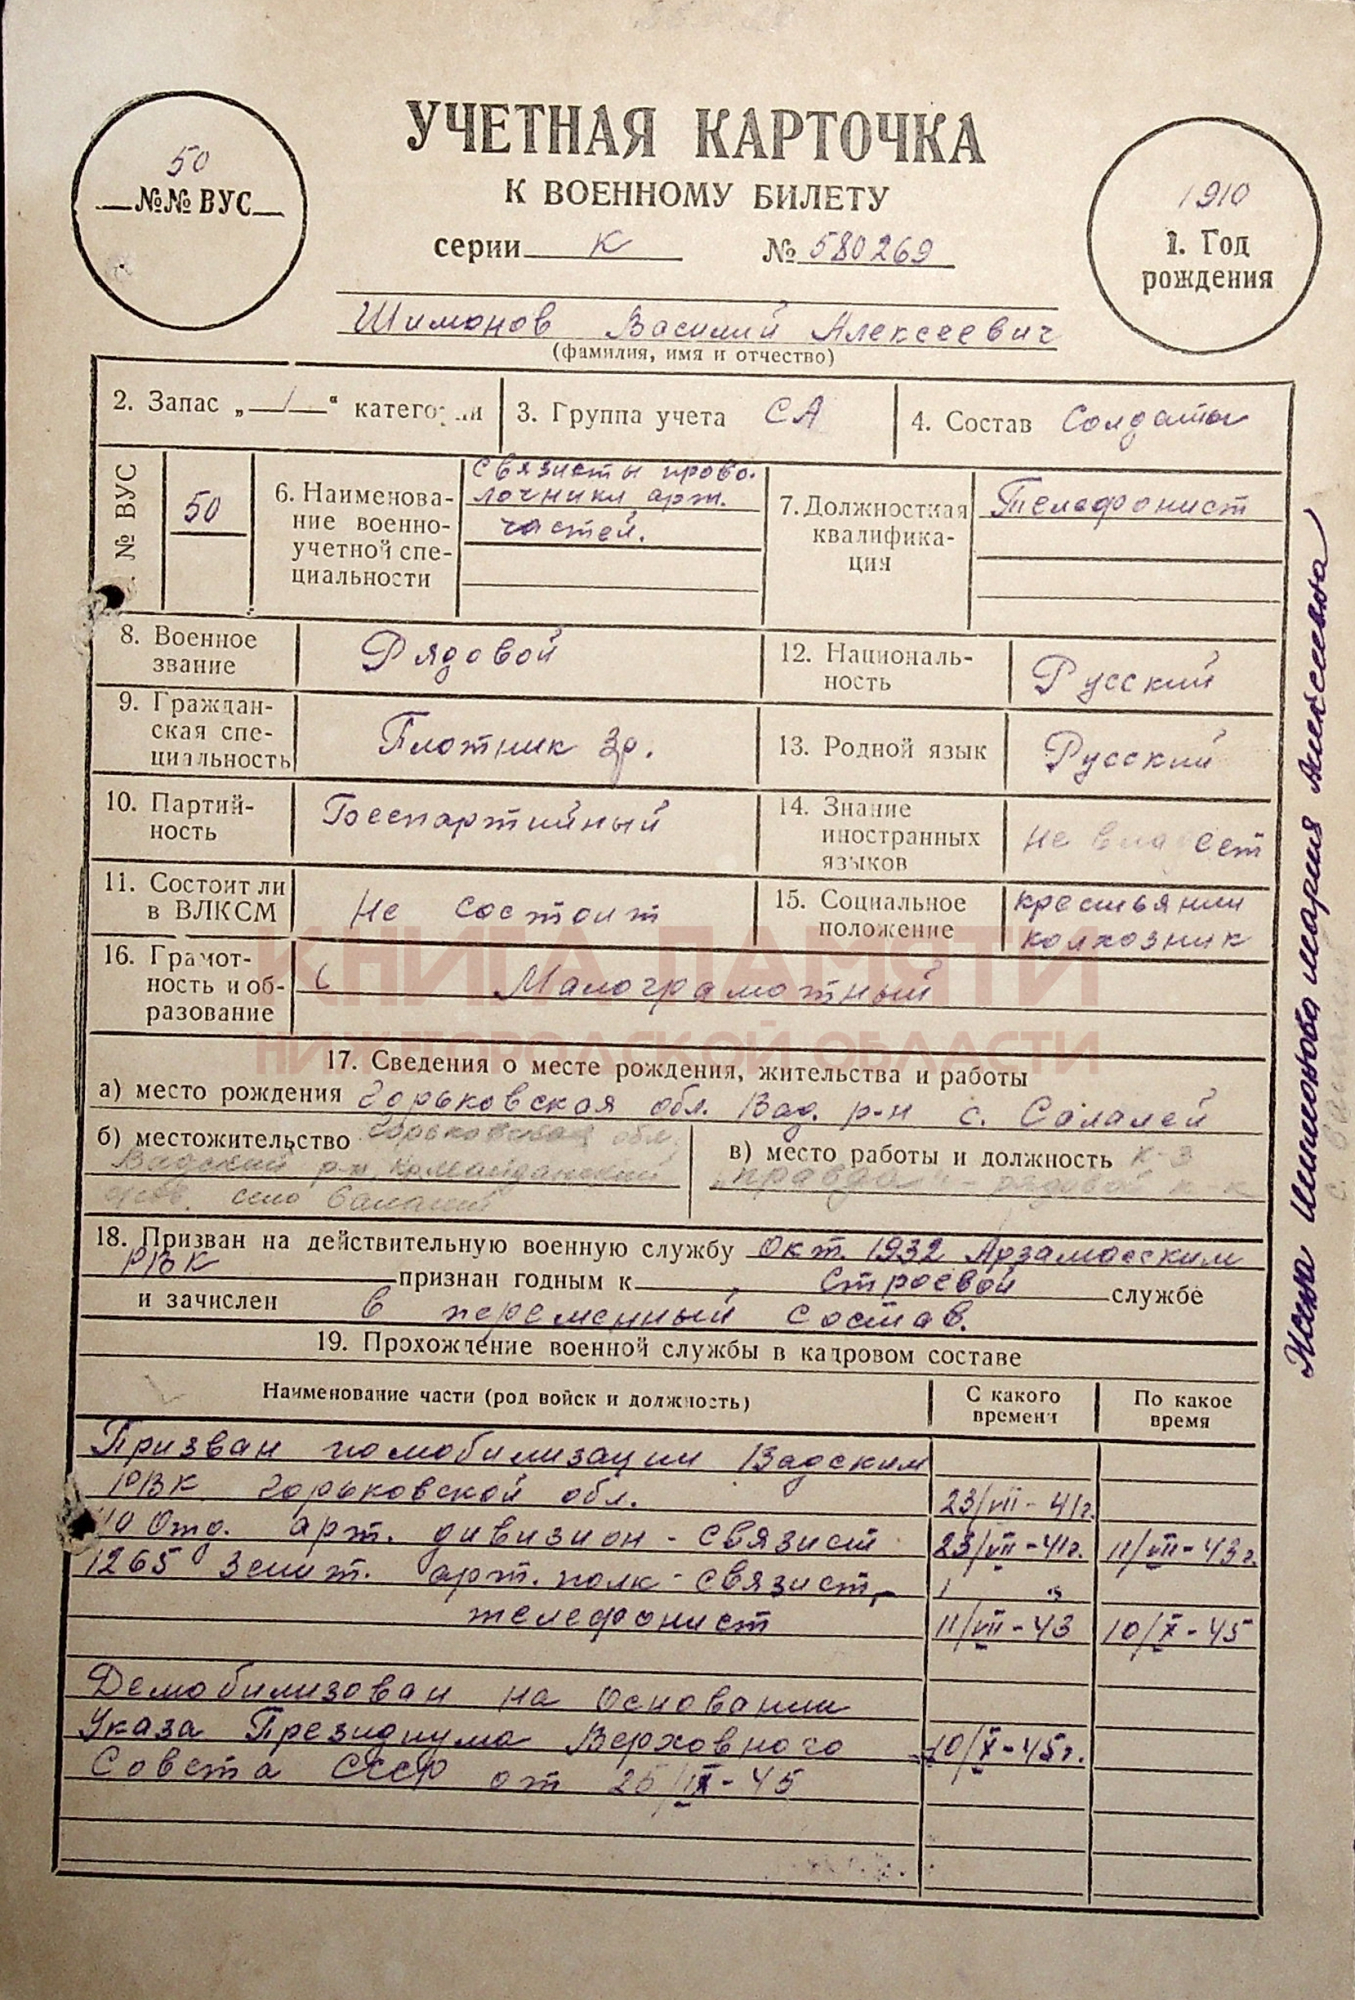 УЧЕТНАЯ КАРТОЧКА
К ВОЕННОМУ БИЛЕТУ
серии К № 580269
50
№№ ВУС
1910
1. Год
рождения
Шимонов Василий Алексеевич
(фамилия, имя и отчество)
2. Запас „ 1 “ категории
3. Группа учета СА
4. Состав Солдаты
№ ВУС
50
6. Наименова-
ние военно-
учетной спе-
циальности
связисты прово-
лочники арт.
частей.
7. Должностная
квалифика-
ция
Телефонист
8. Военное
звание
Рядовой
12. Националь-
ность
Русский
9. Граждан-
ская спе-
циальность
Плотник 3р.
13. Родной язык
Русский
10. Партий-
ность
Беспартийный
14. Знание
иностранных
языков
Не владеет
11. Состоит ли
в ВЛКСМ
Не состоит
15. Социальное
положение
крестьянин
колхозник
16. Грамот-
ность и об-
разование
Малограмотный
КНИГА ПАМЯТИ
НИЖЕГОРОДСКОЙ ОБЛАСТИ
17. Сведения о месте рождения, жительства и работы
а) место рождения Горьковская обл. Вад. р-н с. Салалей
б) местожительство Горьковская обл.
Вадский р-н,
село
в) место работы и должность к-з
„правда“ - рядовой к-к
18. Призван на действительную военную службу Окт. 1932 Арзамасским
РВК признан годным к строевой службе
и зачислен в переменный состав.
19. Прохождение военной службы в кадровом составе
Наименование части (род войск и должность)
С какого
времени
По какое
время
Призван по мобилизации Вадским
РВК Горьковской обл. 23/VII-41г.
Отд. арт. дивизион - связист 23/VII-41г. 11/VII-43г.
1265 Зенит. арт. полк - связист,
телефонист 11/VII-43 10/X-45
Демобилизован на основании
Указа Президиума Верховного 10/X-45г.
Совета СССР от 25/IX-45
Жена Шимонова Мария Алексеевна